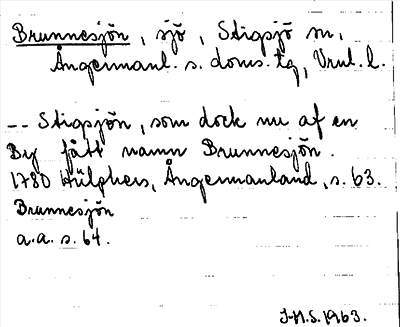 Brunnesjön, sjö, Stigsjö sn,
Ångermanl. s. doms. tg, Vnl. l.
-- Stigsjön, som dock nu af en
By fått namn Brunnesjön.
1780 Hülphers, Ångermanland, s. 63.
Brunnesjön
a.a. s. 64.
J-H.S. 1963.